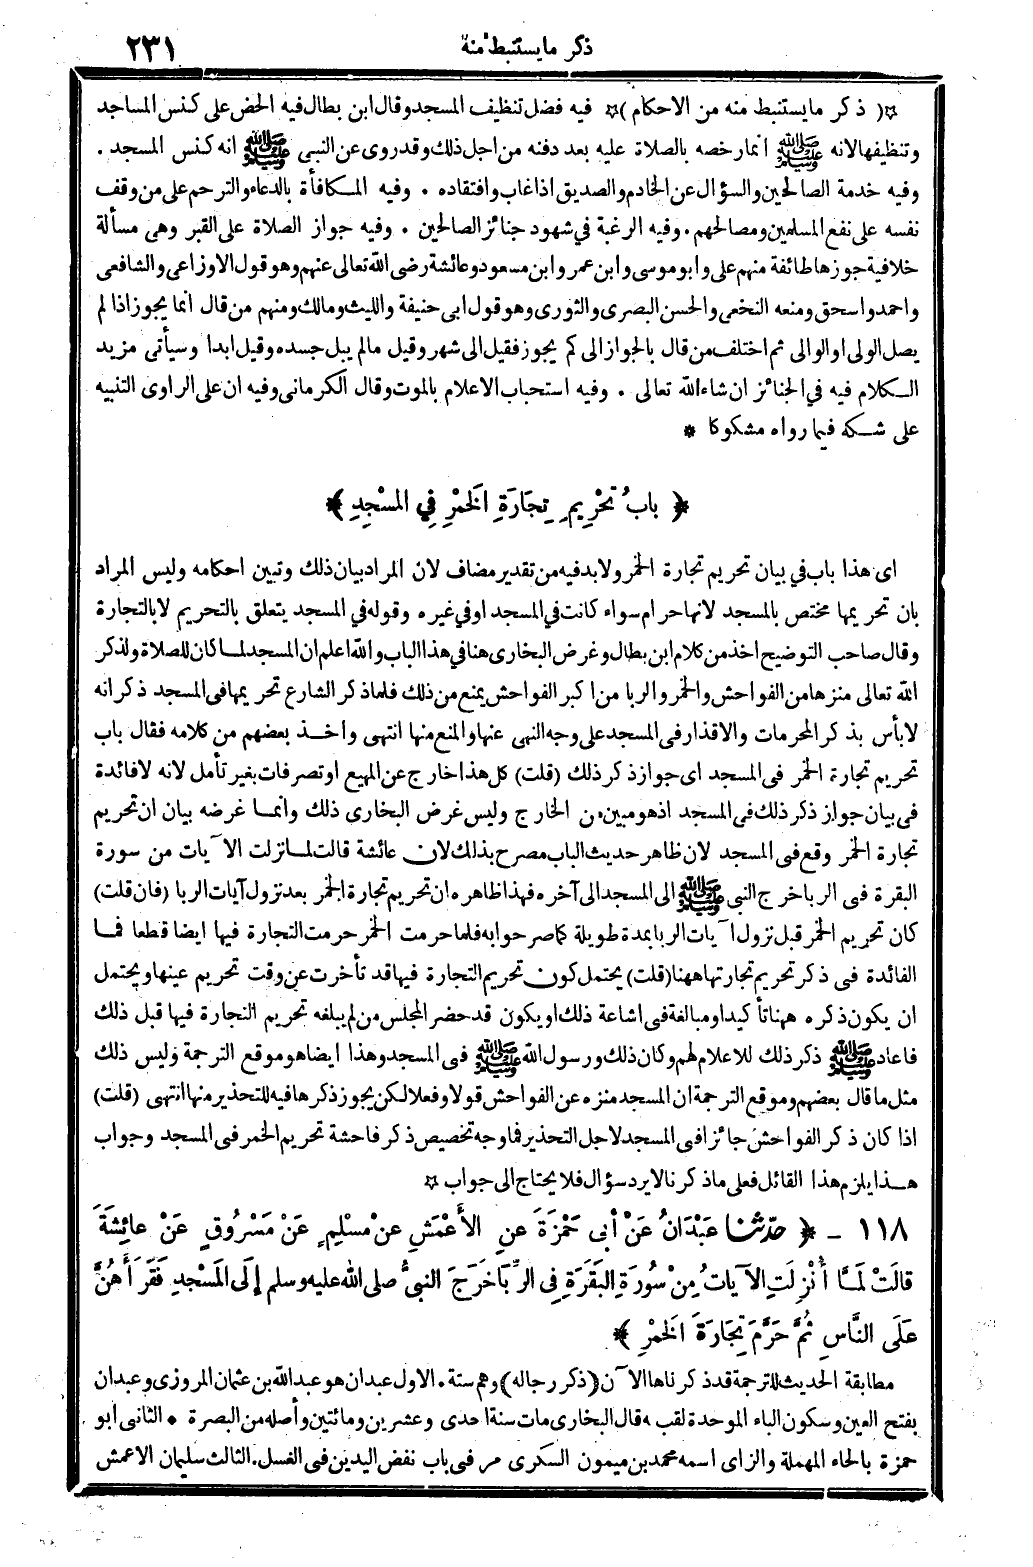 ذكر ما يستنبط منه
٢٣١
☆( ذكر ما يستنبط منه من الاحكام )☆ فيه فضل تنظيف المسجد وقال ابن بطال فيه الحض على كنس المساجد
وتنظيفها لانه ﷺ انما رخصه بالصلاة عليه بعد دفنه من اجل ذلك وقد روى عن النبى ﷺ انه كنس المسجد .
وفيه خدمة الصالحين والسؤال عن الخادم والصديق اذا غاب وافتقاده . وفيه المكافأة بالدعاء والترحم على من وقف
نفسه على نفع المسلمين ومصالحهم . وفيه الرغبة في شهود جنائز الصالحين . وفيه جواز الصلاة على القبر وهى مسألة
خلافية جوزها طائفة منهم على وابو موسى وابن عمر وابن مسعود وعائشة رضى الله تعالى عنهم وهو قول الاوزاعى والشافعى
واحمد واسحق ومنعه النخعى والحسن البصرى والثورى وهو قول ابى حنيفة والليث ومالك ومنهم من قال انما يجوز اذا لم
يصل الولى او الوالى ثم اختلف من قال بالجواز الى كم يجوز فقيل الى شهر وقيل مالم يبل جسده وقيل ابدا وسيأتى مزيد
الكلام فيه في الجنائز ان شاء الله تعالى . وفيه استحباب الاعلام بالموت وقال الكرمانى وفيه ان على الراوى التنبيه
على شكه فيما رواه مشكوكا *
﴿ بابُ تَحْرِيمِ تِجَارَةِ الخَمْرِ فِي المَسْجِدِ ﴾
اى هذا باب في بيان تحريم تجارة الخمر ولا بد فيه من تقدير مضاف لان المراد بيان ذلك وتبين احكامه وليس المراد
بان تحريمها مختص بالمسجد لانها حرام سواء كانت في المسجد او في غيره وقوله في المسجد يتعلق بالتحريم لا بالتجارة
وقال صاحب التوضيح اخذ من كلام ابن بطال وغرض البخارى هنا في هذا الباب والله اعلم ان المسجد لما كان للصلاة ولذكر
الله تعالى منزها من الفواحش والخمر والربا من اكبر الفواحش يمنع من ذلك فلما ذكر الشارع تحريمها فى المسجد ذكر انه
لا بأس بذكر المحرمات والاقذار فى المسجد على وجه النهى عنها والمنع منها انتهى واخذ بعضهم من كلامه فقال باب
تحريم تجارة الخمر فى المسجد اى جواز ذكر ذلك (قلت) كل هذا خارج عن المهيع او تصرفات بغير تأمل لانه لا فائدة
فى بيان جواز ذكر ذلك فى المسجد اذ هو مبين من الخارج وليس غرض البخارى ذلك وانما غرضه بيان ان تحريم
تجارة الخمر وقع فى المسجد لان ظاهر حديث الباب مصرح بذلك لان عائشة قالت لما نزلت الآيات من سورة
البقرة فى الربا خرج النبى ﷺ الى المسجد الى آخره فهذا ظاهره ان تحريم تجارة الخمر بعد نزول آيات الربا (فان قلت)
كان تحريم الخمر قبل نزول آيات الربا بمدة طويلة كما صرحوا به فلما حرمت الخمر حرمت التجارة فيها ايضا قطعا فما
الفائدة فى ذكر تحريم تجارتها ههنا (قلت) يحتمل كون تحريم التجارة فيها قد تأخرت عن وقت تحريم عينها ويحتمل
ان يكون ذكره ههنا تأكيدا ومبالغة فى اشاعة ذلك او يكون قد حضر المجلس من لم يبلغه تحريم التجارة فيها قبل ذلك
فاعاد ﷺ ذكر ذلك للاعلام لهم وكان ذلك ورسول الله ﷺ فى المسجد وهذا ايضا هو موقع الترجمة وليس ذلك
مثل ما قال بعضهم وموقع الترجمة ان المسجد منزه عن الفواحش قولا وفعلا لكن يجوز ذكرها فيه للتحذير منها انتهى (قلت)
اذا كان ذكر الفواحش جائزا فى المسجد لاجل التحذير فما وجه تخصيص ذكر فاحشة تحريم الخمر فى المسجد وجواب
هذا يلزم هذا القائل فعلى ما ذكرنا لا يرد سؤال فلا يحتاج الى جواب ☆
١١٨ - ﴿ حدّثنا عَبْدَانُ عَنْ أبى حَمْزَةَ عنِ الأعْمَشِ عنْ مسْلِمٍ عَنْ مَسْرُوقٍ عَنْ عائِشَةَ
قالَتْ لَمَّا أُنْزِلَتِ الآياتُ مِنْ سُورَةِ البَقَرَةِ فِى الرِّبَا خَرَجَ النبىُّ صلى الله عليه وسلم إلَى المَسْجِدِ فَقَرَأَهُنَّ
عَلَى النَّاسِ ثُمَّ حَرَّمَ تِجَارَةَ الخَمْرِ ﴾
مطابقة الحديث للترجمة قد ذكرناها الآن (ذكر رجاله) وهم ستة . الاول عبدان هو عبد الله بن عثمان المروزى وعبدان
بفتح العين وسكون الباء الموحدة لقب له قال البخارى مات سنة احدى وعشرين ومائتين وأصله من البصرة * الثانى ابو
حمزة بالحاء المهملة والزاى اسمه محمد بن ميمون السكرى مر فى باب نفض اليدين فى الغسل . الثالث سليمان الاعمش